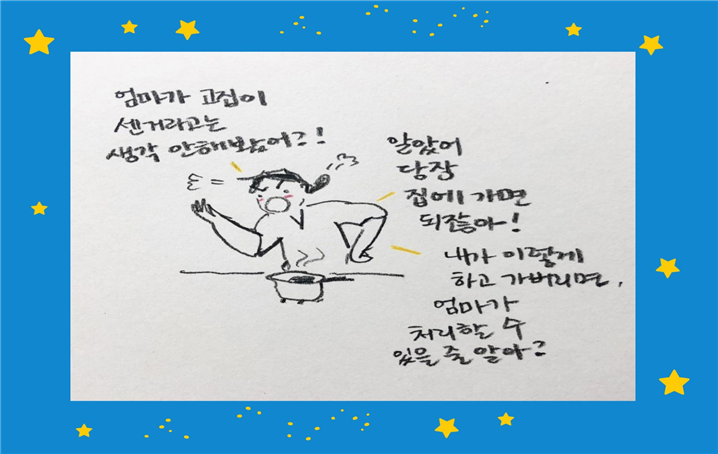 엄마가 고집이
센거라고는
생각 안해봤어?!
알았어
당장
집에 가면
되잖아!
내가 이렇게
하고 가버리면,
엄마가
처리할 수
있을 줄 알아?